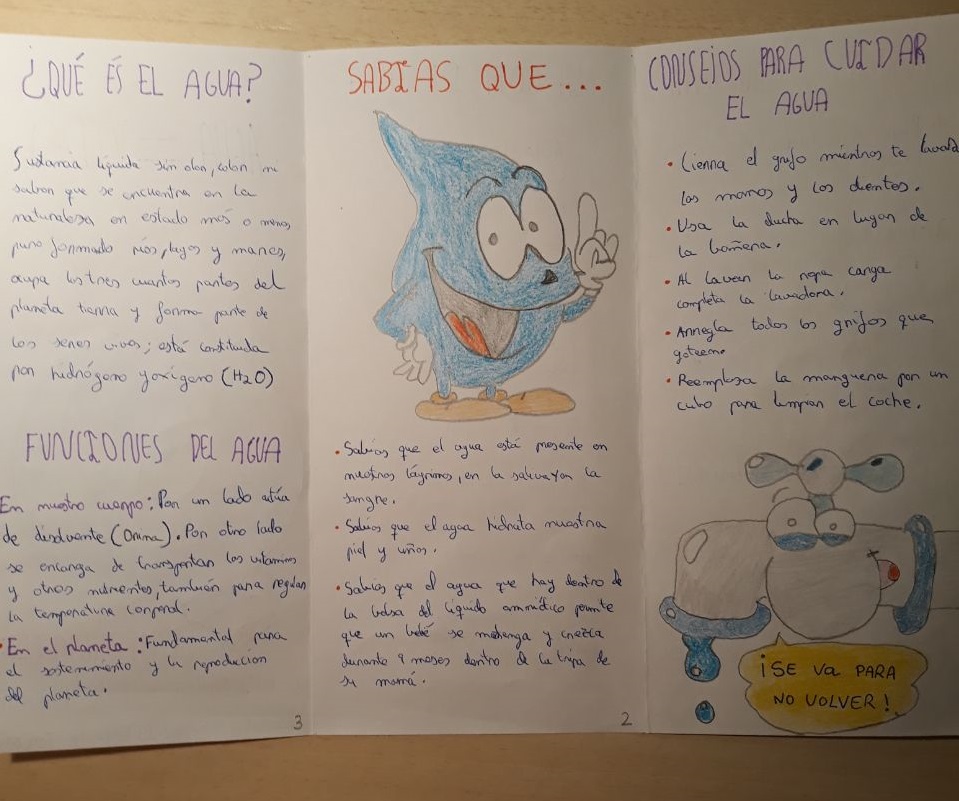 ¿QUÉ ÉS EL AGUA?
Sustancia líquida sin olor, color ni
sabor que se encuentra en la
naturalesa en estado más o menos
puro formado ríos, lagos y mares,
ocupa las tres cuartas partes del
planeta tierra y forma parte de
los seres vivos; está constituida
por hidrógeno y oxígeno (H2O)
FUNCIONES DEL AGUA
En nuestro cuerpo: Por un lado actúa
de disolvente (Orina). Por otro lado
se encarga de transportar las vitaminas
y otros nutrientes, también para regular
la temperatura corporal.
• En el planeta: Fundamental para
el sostenimiento y la reproducion
del planeta.
3
SABIAS QUE...
• Sabías que el agua está presente en
nuestras lágrimas, en la saliva y en la
sangre.
• Sabías que el agua hidrata nuestra
piel y uñas.
• Sabías que el agua que hay dentro de
la bolsa del líquido amniótico permite
que un bebé se mantenga y crezca
durante 9 meses dentro de la tripa de
su mamá.
2
CONSEJOS PARA CUIDAR
EL AGUA
• Cierra el grifo mientras te lavas
las manos y los dientes.
• Usa la ducha en lugar de
la bañera.
• Al lavar la ropa carga
completa la lavadora.
• Arregla todos los grifos que
goteen.
• Reemplasa la manguera por un
cubo para limpiar el coche.
¡SE Va PARA
NO VOLVER!